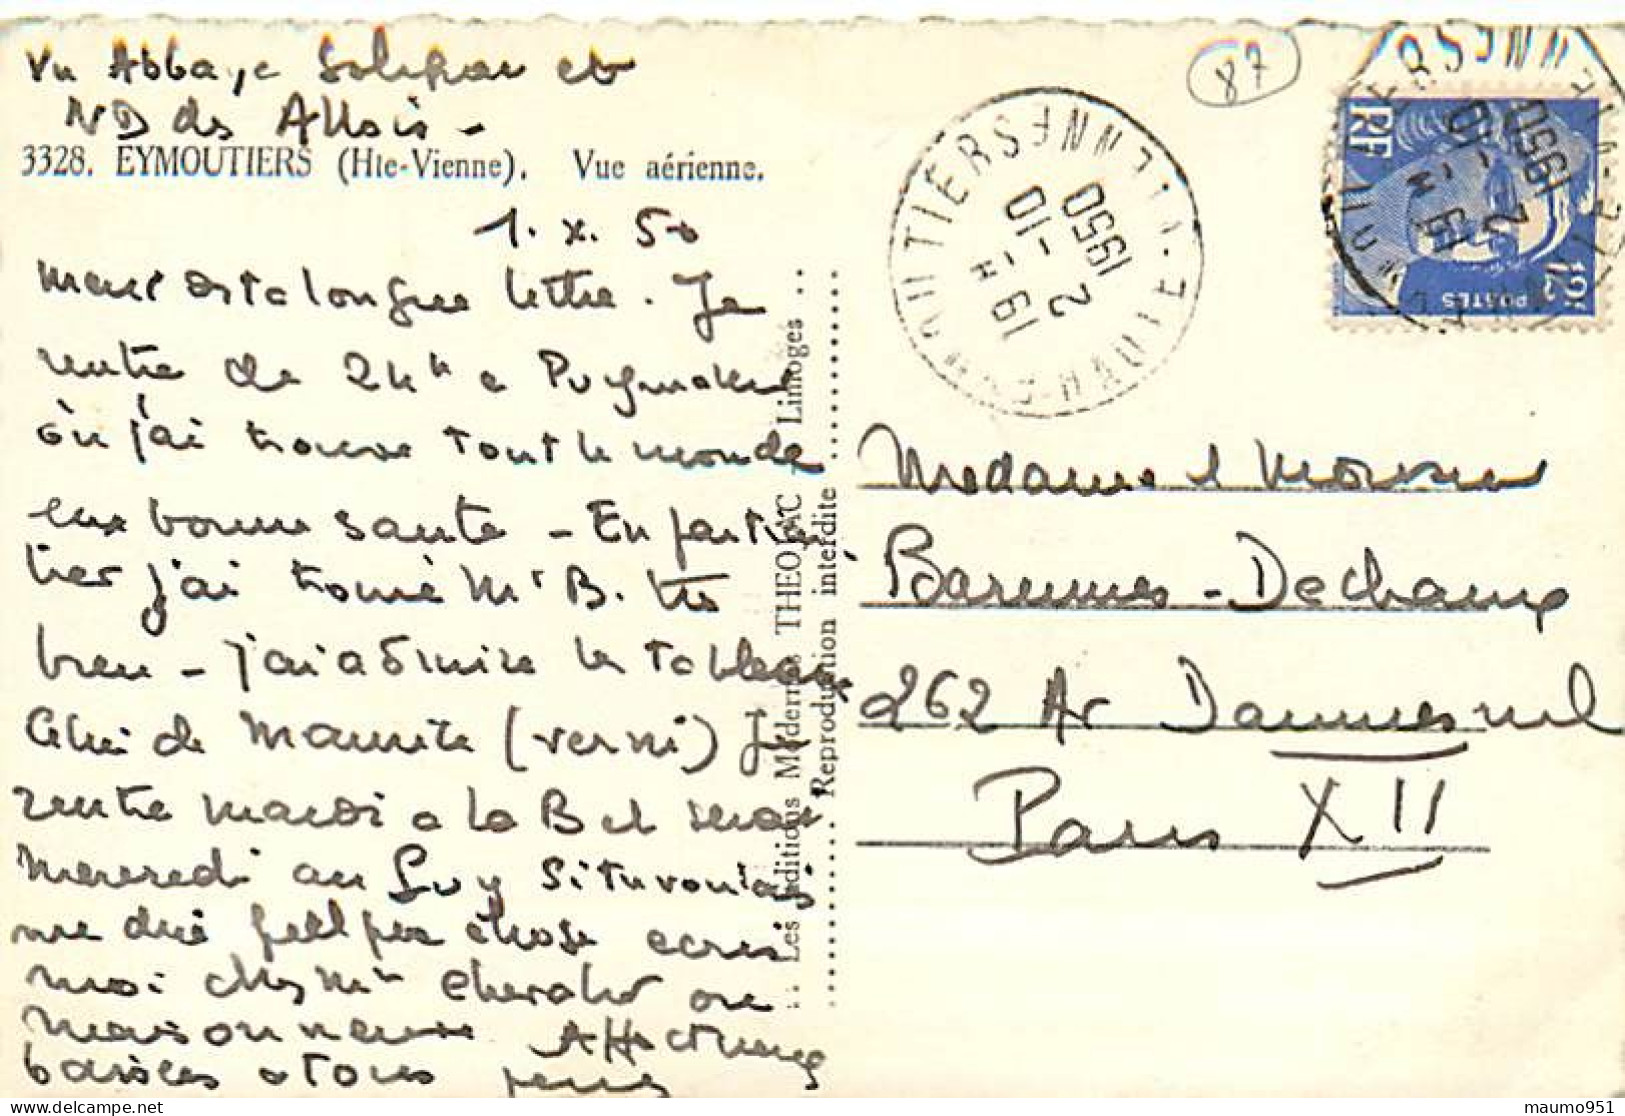 Vu Abbaye Solignac et
ND des Allois -
3328. EYMOUTIERS (Hte-Vienne). Vue aérienne.
1. X. 50
Merci de ta longue lettre. Je
rentre de 24h a
où j'ai trouvé tout le monde
en bonne santé - En
hier j'ai trouvé Mr B. très
bien - j'ai admiré le tableau
Celui de (verni) Je
rentre mardi a la B et
Mercredi au Si tu voulais
me dire quelque chose ecris
moi chez Mme Chevalier
Affectueux
baisers a tous
Les Editions Modernes THEOJAC Limoges
Reproduction interdite
87
EYMOUTIERS
HAUTE-VIENNE
19 H
2 - 10
1950
RF
POSTES
12F
Madame & Monsieur
Barennes-Dechamp
262 Av Daumesnil
Paris XII
maumo951